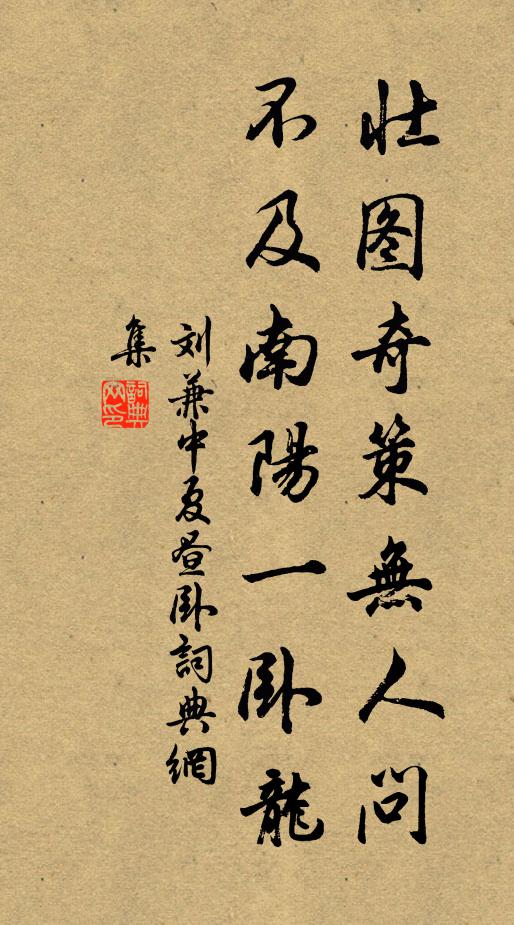 壮图奇策無人問
不及南陽一卧龍
刘兼中夏昼卧詞典網
集
詞典
网印